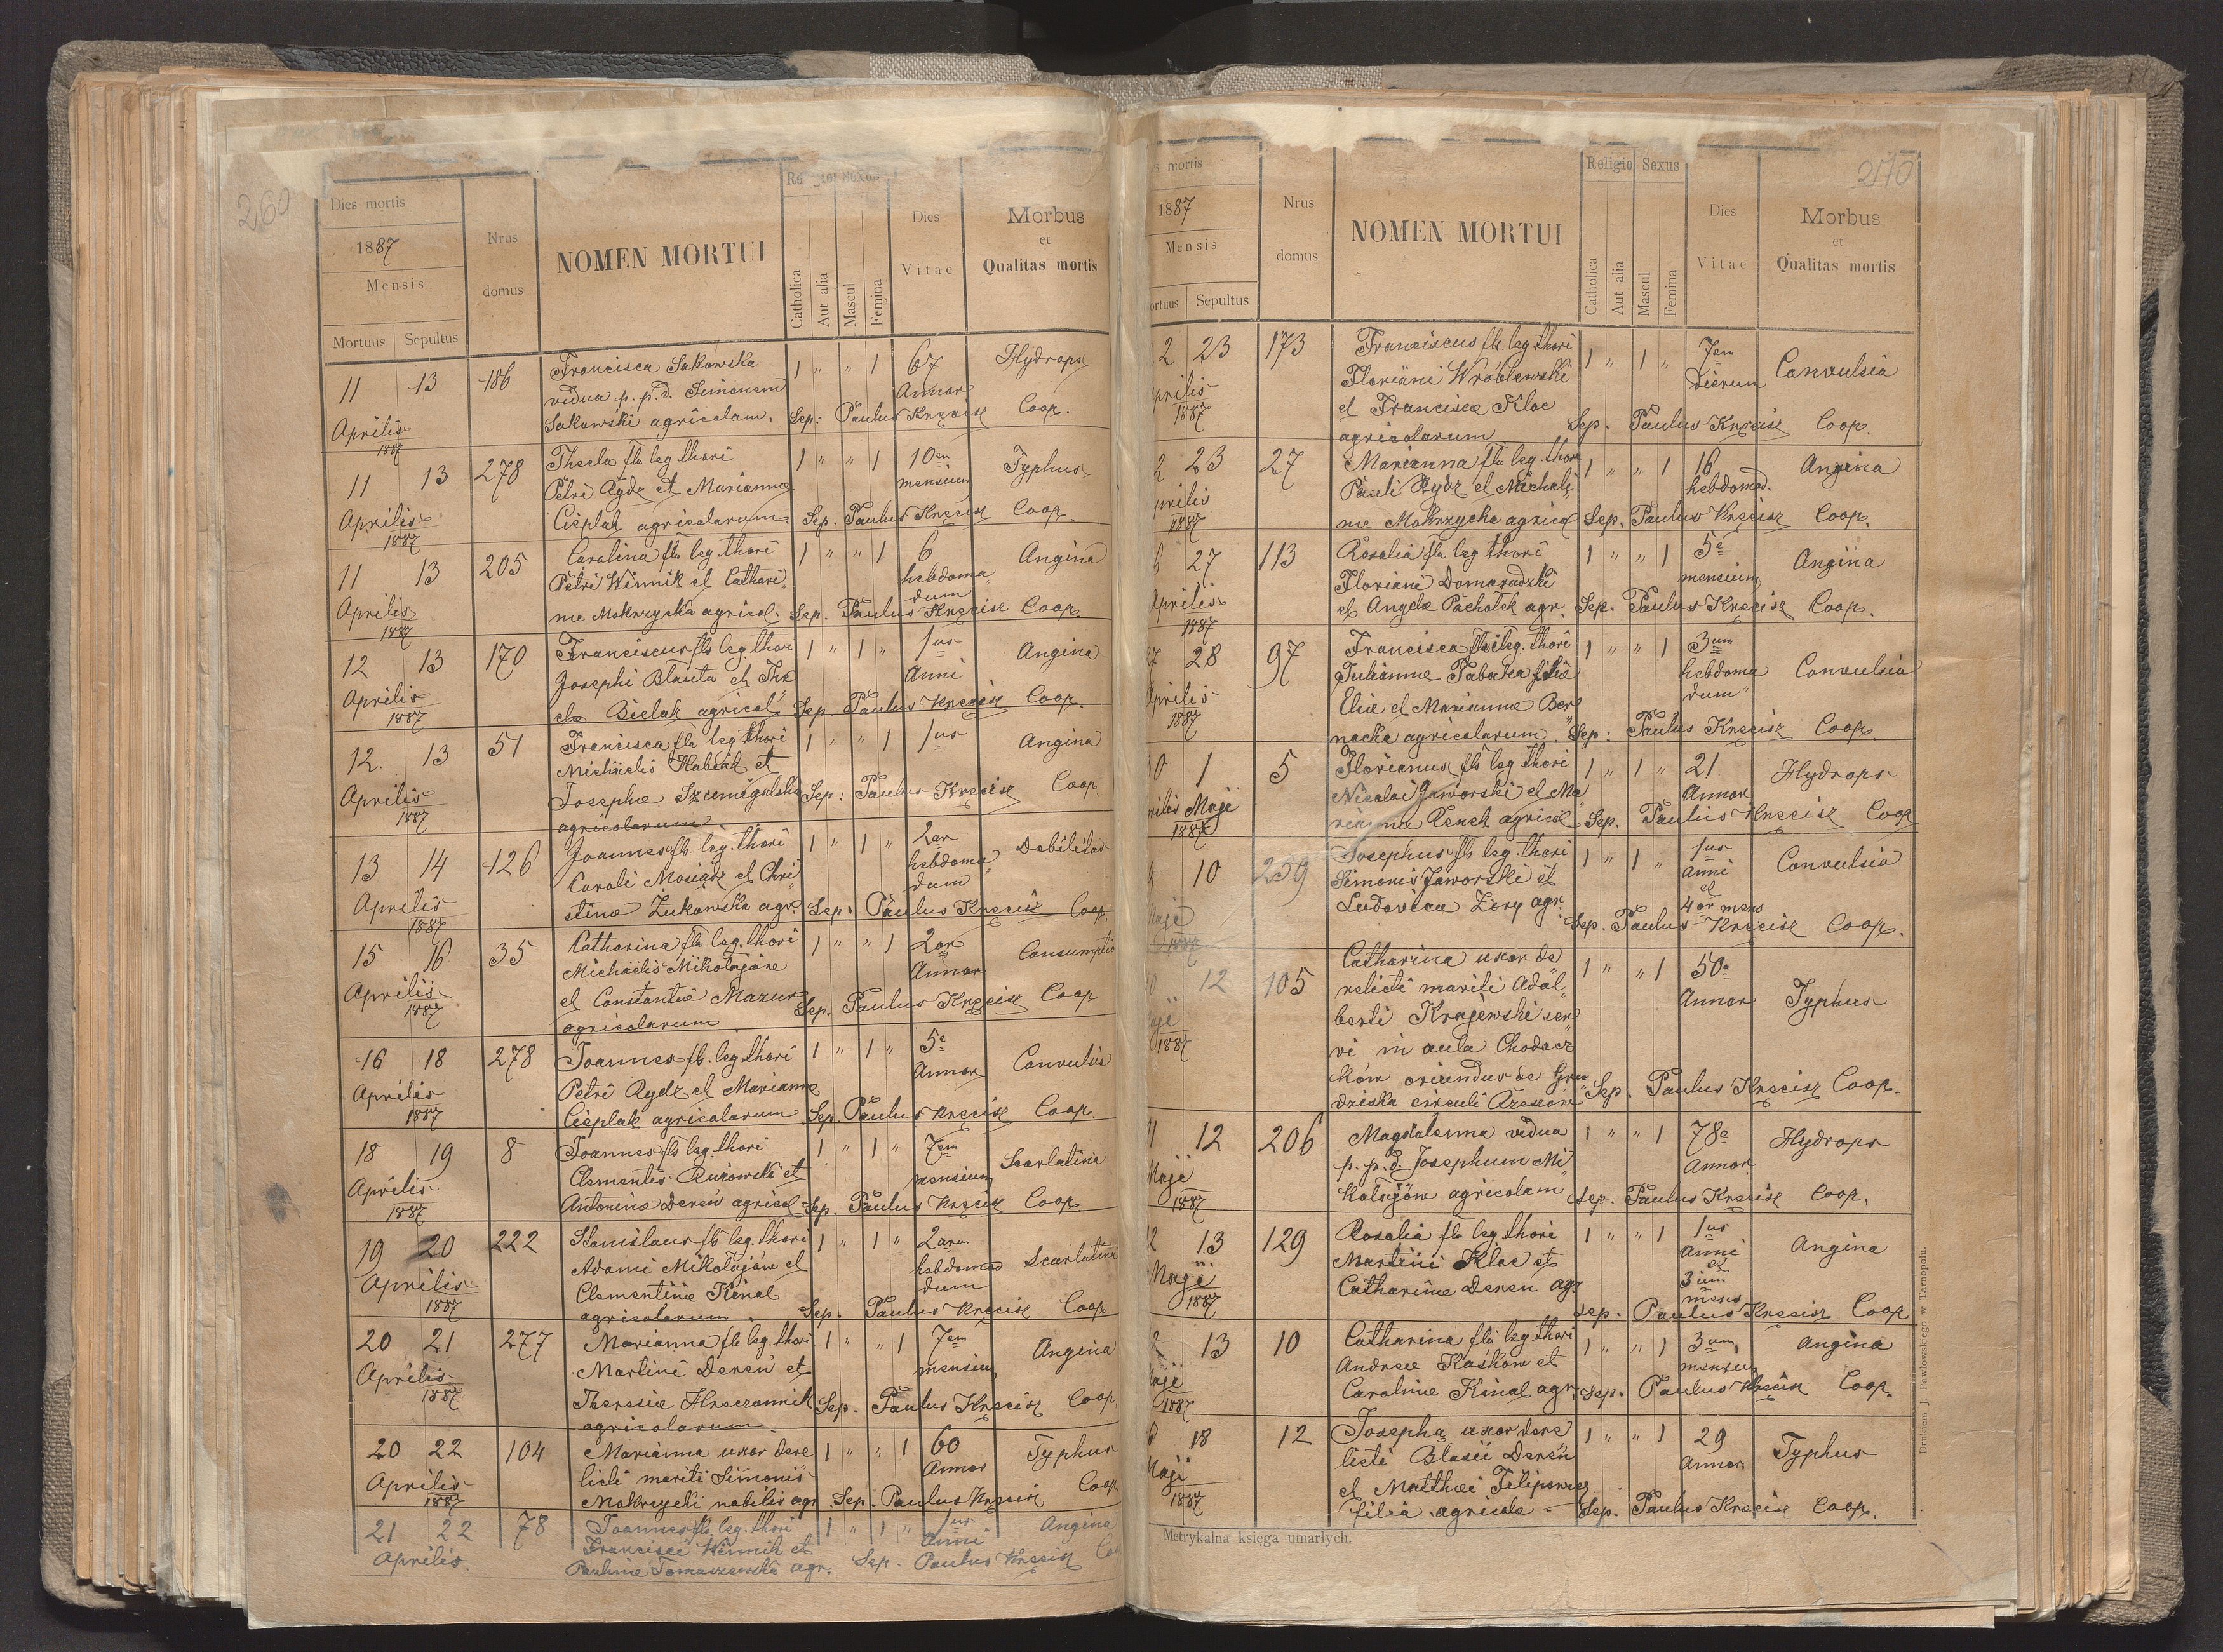 260
Dies mortis
1887
Mensis
Mortuus Sepultus
Nrus
domus
NOMEN MORTUI
Sexus
Catholica
Aut alia
Mascul
Femina
Dies
Vitae
Morbus
et
Qualitas mortis
11 13 186 Francisca Sakowska 1 " " 1 67 Hydrops
vidua p. p. d. Simonem Annor
Aprilis Sakowski agricolam. Sep: Paulus Kręcisz Coop.
1887
11 13 278 Thecla fla leg. thori 1 " " 1 10em Typhus
Petri Rydz et Marianna mensium
Aprilis Cieplak agricolarum. Sep. Paulus Kręcisz Coop.
1887
11 13 205 Carolina fla leg. thori 1 " " 1 6 Angina
Petri Winnik et Cathari hebdoma
dum
Aprilis nae Mokrzycka agricol. Sep. Paulus Kręcisz Coop.
1887
12 13 170 Franciscus fls leg. thori 1 " 1 " 1us Angina
Josephi Blauta et The Anni
Aprilis cla Bielak agricol. Sep. Paulus Kręcisz Coop.
1887
12. 13 51 Francisca fla leg. thori 1 " " 1 1us Angina
Michaelis et
Aprilis Josephae Szumigalska Sep: Paulus Kręcisz Coop.
1887 agricolarum.
13 14 126 Joannes fls. leg. thori 1 " 1 " 2ar Debilitas
Caroli Mosiądz et Chri hebdoma
dum
Aprilis stina Żukowska agr. Sep. Paulus Kręcisz Coop.
1887
15 16 35 Catharina fla leg. thori 1 " " 1 2ar Consumptio
Michaelis Mikołajów Annor
Aprilis et Constantia Mazur Sep. Paulus Kręcisz Coop
1887 agricolarum
16 18 278 Joannes fls. leg. thori 1 " 1 " 5e Convulsia
Petri Rydz et Marianna Annor
Aprilis Cieplak agricolarum Sep. Paulus Kręcisz Coop.
1887
18 19 8 Joannes fls leg. thori 1 " 1 " 7em Scarlatina
Clementis et mensium
Aprilis Antonina Dereń agricol. Sep. Paulus Kręcisz Coop
1887
19 20 222 Stanislaus fls leg. thori 1 " 1 " 2arum Scarlatina
Adami Mikołajów et hebdoma
dum
Aprilis Clementinae Kinal
1887 agricolarum. Sep. Paulus Kręcisz Coop
20 21 277 Marianna fla leg. thori 1 " " 1 7em Angina
Martini Dereń et mensium
Aprilis
1887 Theresiae Sep. Paulus Kręcisz Coop.
agricolarum.
20 22 104 Marianna uxor dere 1 " " 1 60 Typhus
licti mariti Simonis Annor
Aprilis Mokrzycki nobilis agr. Sep. Paulus Kręcisz Coop
1887
21 22 78 Joannes fls. leg. thori 1 " 1 " 1us Angina
Francisci Winnik et Anni
Aprilis. Paulinae Tomaszewska agr. Sep. Paulus Kręcisz
270
mortis
1887
Mensis
Sepultus
Nrus
domus
NOMEN MORTUI
Religio Sexus
Catholica
Aut alia
Mascul
Femina
Dies
Vitae
Morbus
et
Qualitas mortis
2 23 173 Franciscus fls. leg. thori 1 " 1 " 7em Convulsia
Floriani Wróblewski dierum
1887 et Francisca Kloc Sep. Paulus Kręcisz Coop.
agricolarum
2 23 27 Marianna fla leg. thori 1 " " 1 16 Angina
Pauli Rydz et Michali hebdomad.
1887 nae Mokrzycka agricol Sep. Paulus Kręcisz Coop.
6 27 113 Rosalia fla leg. thori 1 " " 1 5e Angina
Floriani Domaradzki mensium
Aprilis et Angela Pacholek agr. Sep. Paulus Kręcisz Coop.
1887
27 28 97 Francisca fla leg. thori 1 " " 1 3um Convulsia
Julianna filia hebdoma
dum
Aprilis Eliae et Marianna Ber
1887 nacka agricolarum. Sep: Paulus Kręcisz Coop.
0 1 5 Florianus fls leg. thori 1 " 1 " 21 Hydrops
Nicolai Jaworski et Ma Annor
Maji rianna agricol Sep. Paulus Kręcisz Coop
1887
10 259 Josephus fls leg. thori 1 " 1 " 1us Convulsia
Simonis Jaworski et anni
et
Ludovica Żery agr. 4or mens
1887 Sep. Paulus Kręcisz Coop.
12 105 Catharina uxor de 1 " " 1 50a Typhus
relicti mariti Adal Annor
berti Krajewski ser
1887 vi in aula Chodacz
ków oriundus de Gro
dziska circuli Sep. Paulus Kręcisz Coop.
12 206 Magdalenna vidua 1 " " 1 78a Hydrops
p. p. d. Josephum Mi Annor
Maji kołajów agricolam Sep. Paulus Kręcisz Coop.
1887
13 129 Rosalia fla leg. thori 1 " " 1 1us Angina
Martini Kloc et anni
et
Maji Catharinae Dereń agr. 3ium
mens
1887 Sep. Paulus Kręcisz Coop
13 10 Catharina fla leg. thori 1 " " 1 3um Angina
Andreae Kaśków et mensium
Carolinae Kinal agr. Sep. Paulus Kręcisz Coop.
1887
18 12 Josepha uxor dere 1 " " 1 29 Typhus
licti Blasii Dereń Annor
Maji et Matthaei Filipowicz
1887 filia agricola. Sep. Paulus Kręcisz Coop.
Metrykalna księga umarłych.
Drukiem J. Pawłowskiego w Tarnopolu.